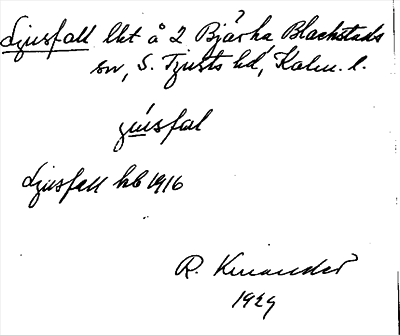 Djusfall lht å 2 Bjärka Blackstads
sn, S. Tjusts hd, Kalm. l.
jusfal
Djusfall kb 1916
R. Kinander
1929